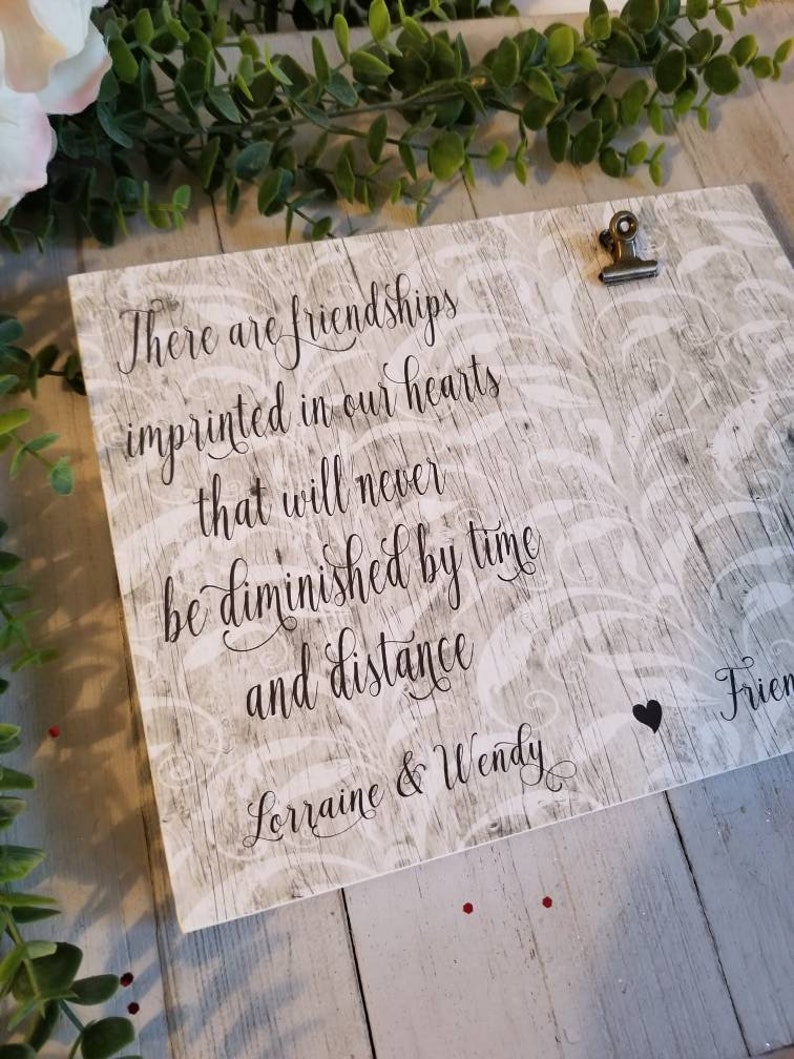 There are friendships
imprinted in our hearts
that will never
be diminished by time
and distance
Lorraine & Wendy